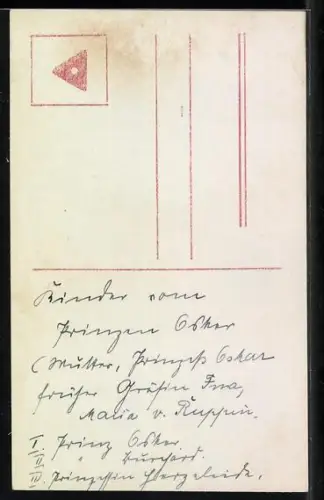 Kinder vom
Prinzen Oskar
(Mutter, Prinzeß Oskar
früher Gräfin Ina,
Maria v. Ruppin.
I. Prinz Oskar
II. " Burchard.
III. Prinzessin Herzeleide.